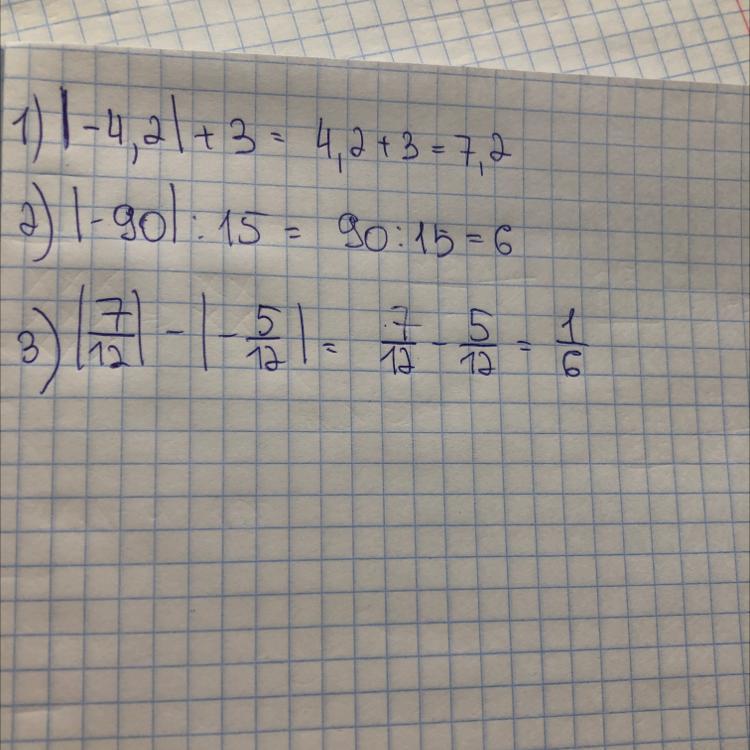 1) |-4,2| + 3 = 4,2 + 3 = 7,2
2) |-90| : 15 = 90 : 15 = 6
3) |7/12| - |-5/12| = 7/12 - 5/12 = 1/6